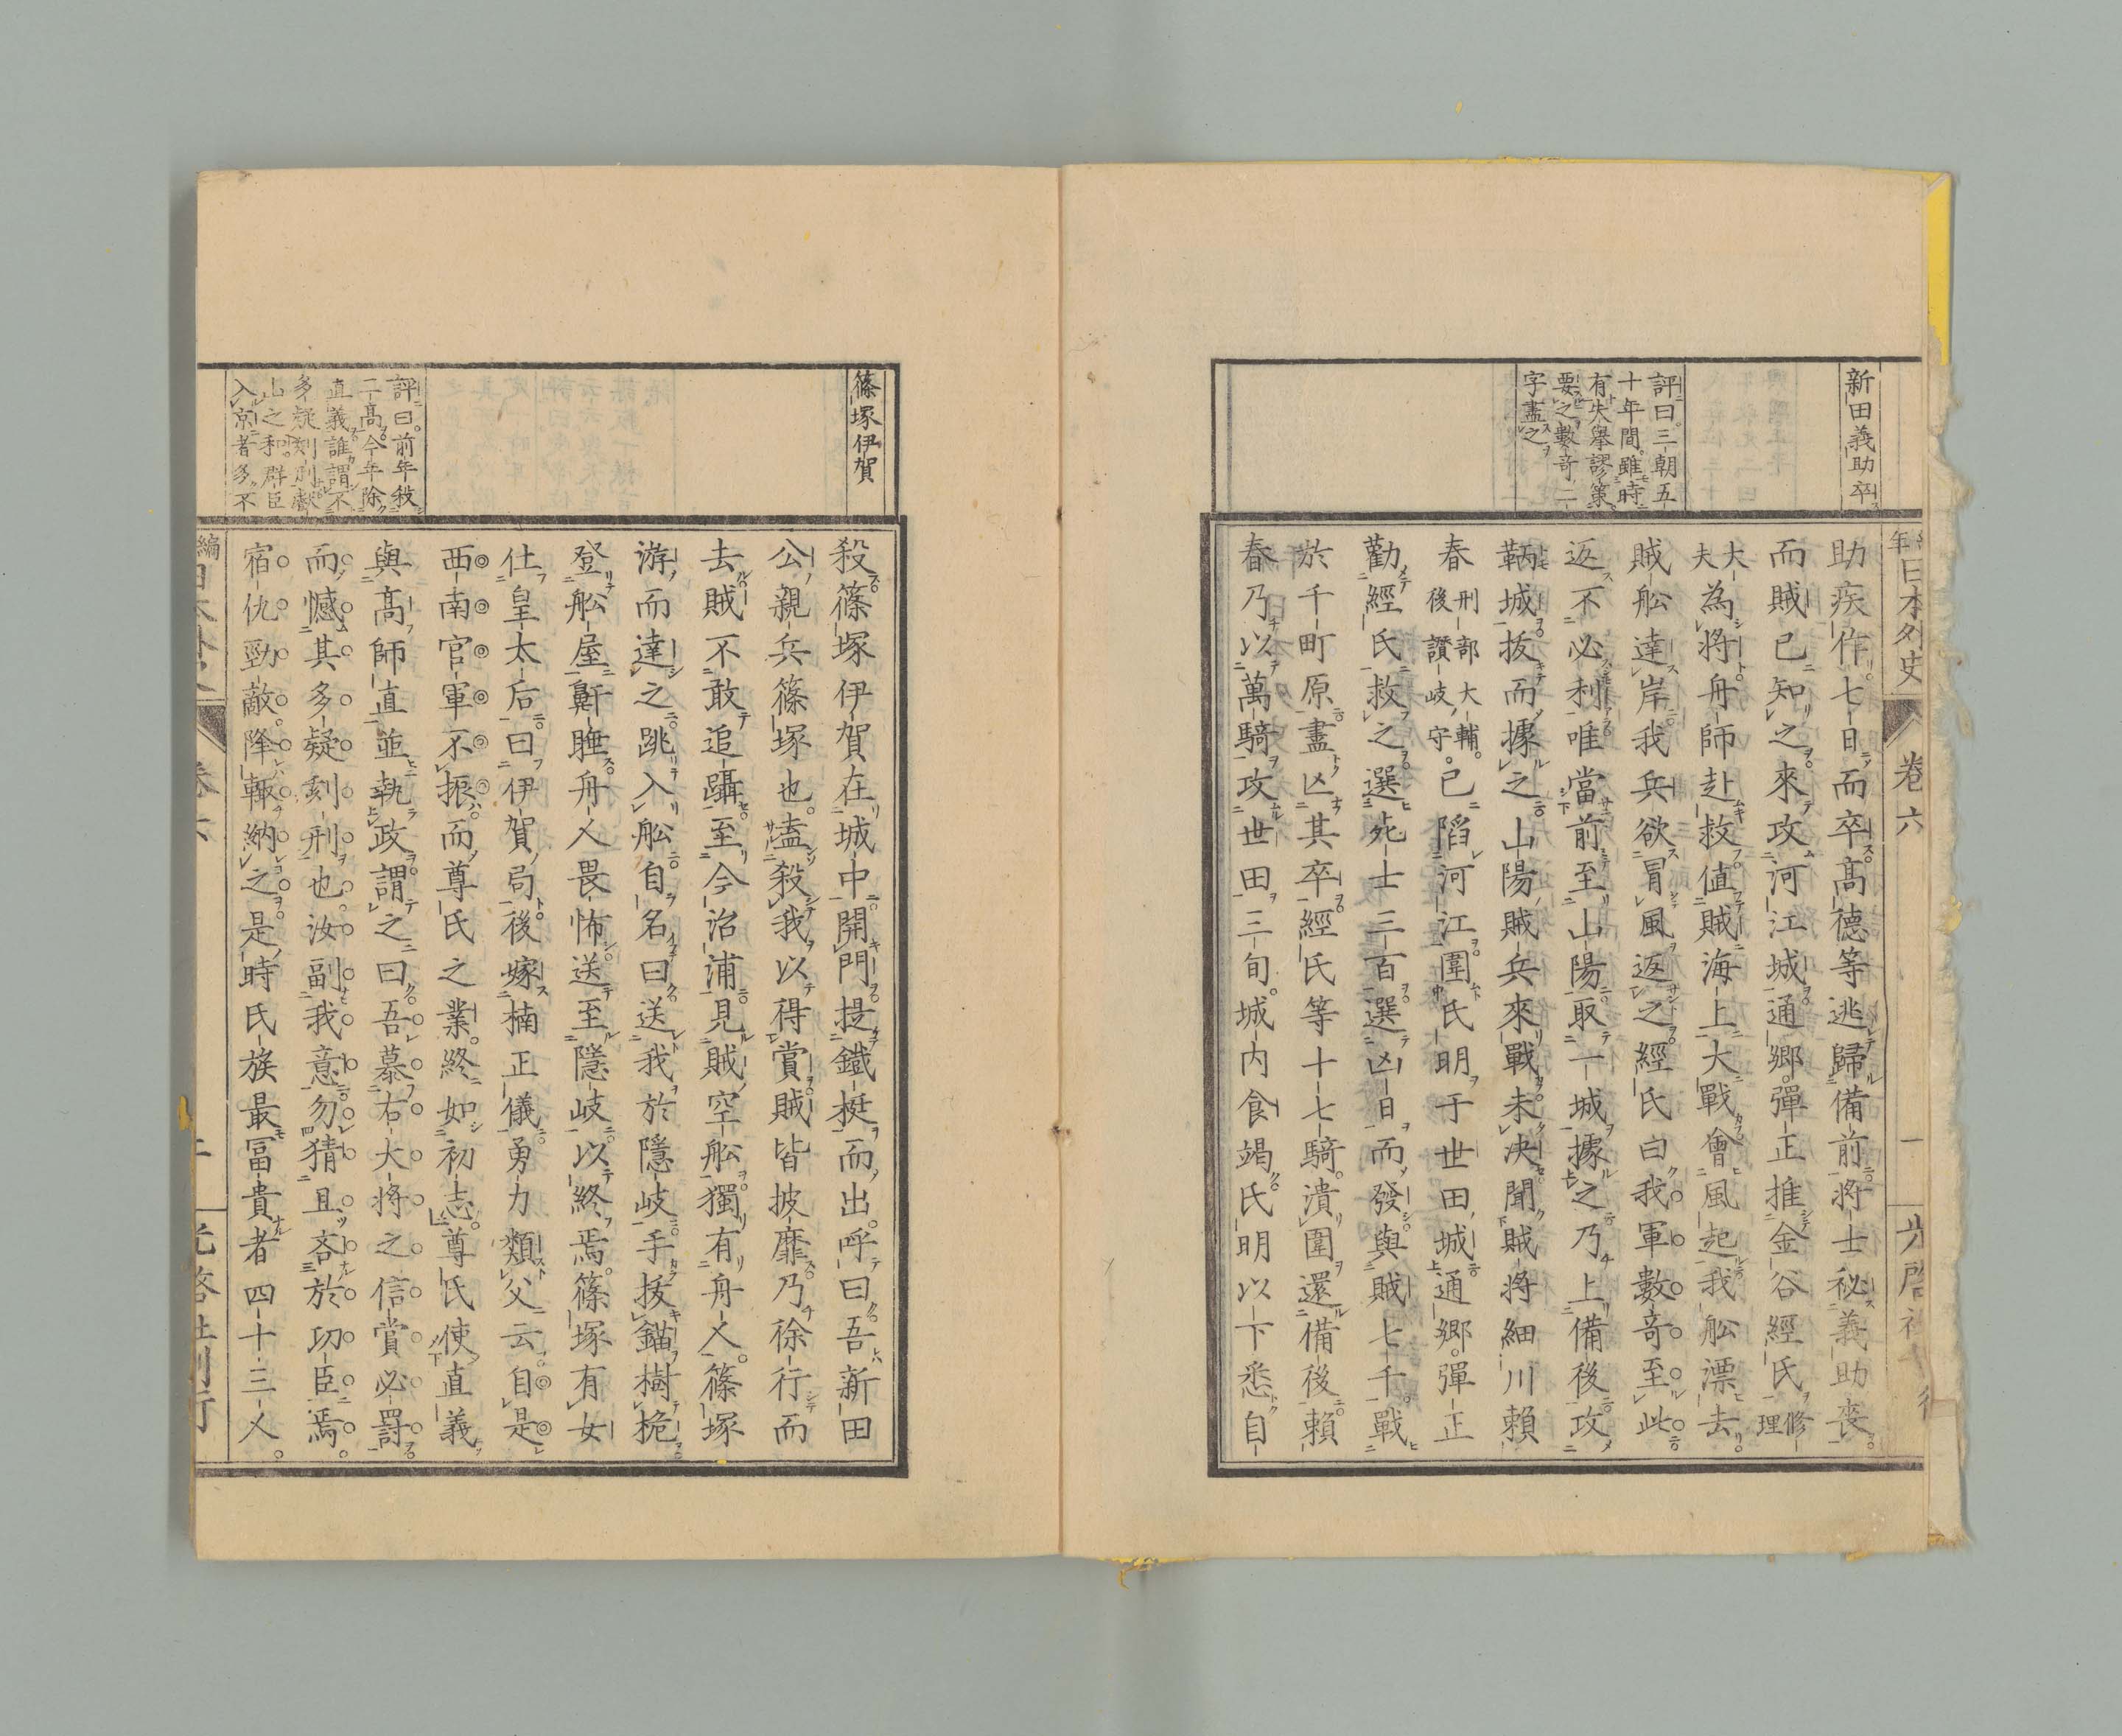 新田義助卒
評曰。三朝五
十年間。雖時
有失擧謬策
要之數奇二
字盡之
日本外史
卷六
一
助疾作。七日而卒。高德等逃歸備前。將士秘義助喪。
而賊已知之。來攻河江城。通鄉。彈正推金谷經氏修理
大夫為將。舟師赴救。值賊海上。大戰。會風起。我船漂去。
賊船達岸。我兵欲冒風返之。經氏曰。我軍數奇至此。
返不必利。唯當前至山陽。取一城據之。乃上備後。攻
鞆城。拔而據之。山陽賊兵來戰。未決。聞賊將細川賴
春刑部大輔。後讚岐守。已陷河江。圍氏明于世田城。通鄉。彈正
勸經氏救之。選死士三百。選凶日而發。與賊七千。戰
於千町原。盡凶其卒。經氏等十七騎。潰圍還備後。賴
春乃以萬騎攻世田三旬。城内食竭。氏明以下悉自
篠塚伊賀
評曰。前年殺
二高。今年除
直義。誰謂不
多疑刻刑歟
山之和。群臣
入京者多不
殺。篠塚伊賀在城中。開門提鐵梃而出。呼曰。吾新田
公親兵篠塚也。盍殺我以得賞。賊皆披靡。乃徐行而
去。賊不敢追躡。至今治浦。見賊空船。獨有舟人。篠塚
游而達之。跳入船。自名曰。送我於隱岐。手拔錨樹桅。
登船屋鼾睡。舟人畏怖。送至隱岐。以終焉。篠塚有女
仕皇太后。曰伊賀局。後嫁楠正儀。勇力類父云。自是
西南官軍不振。而尊氏之業。終如初志。尊氏使直義
與高師直並執政。謂之曰。吾慕右大將之信賞必罰。
而憾其多疑刻刑也。汝副我意。勿猜且吝於功臣焉。
宿仇勁敵。降輙納之。是時氏族最冨貴者四十三人。